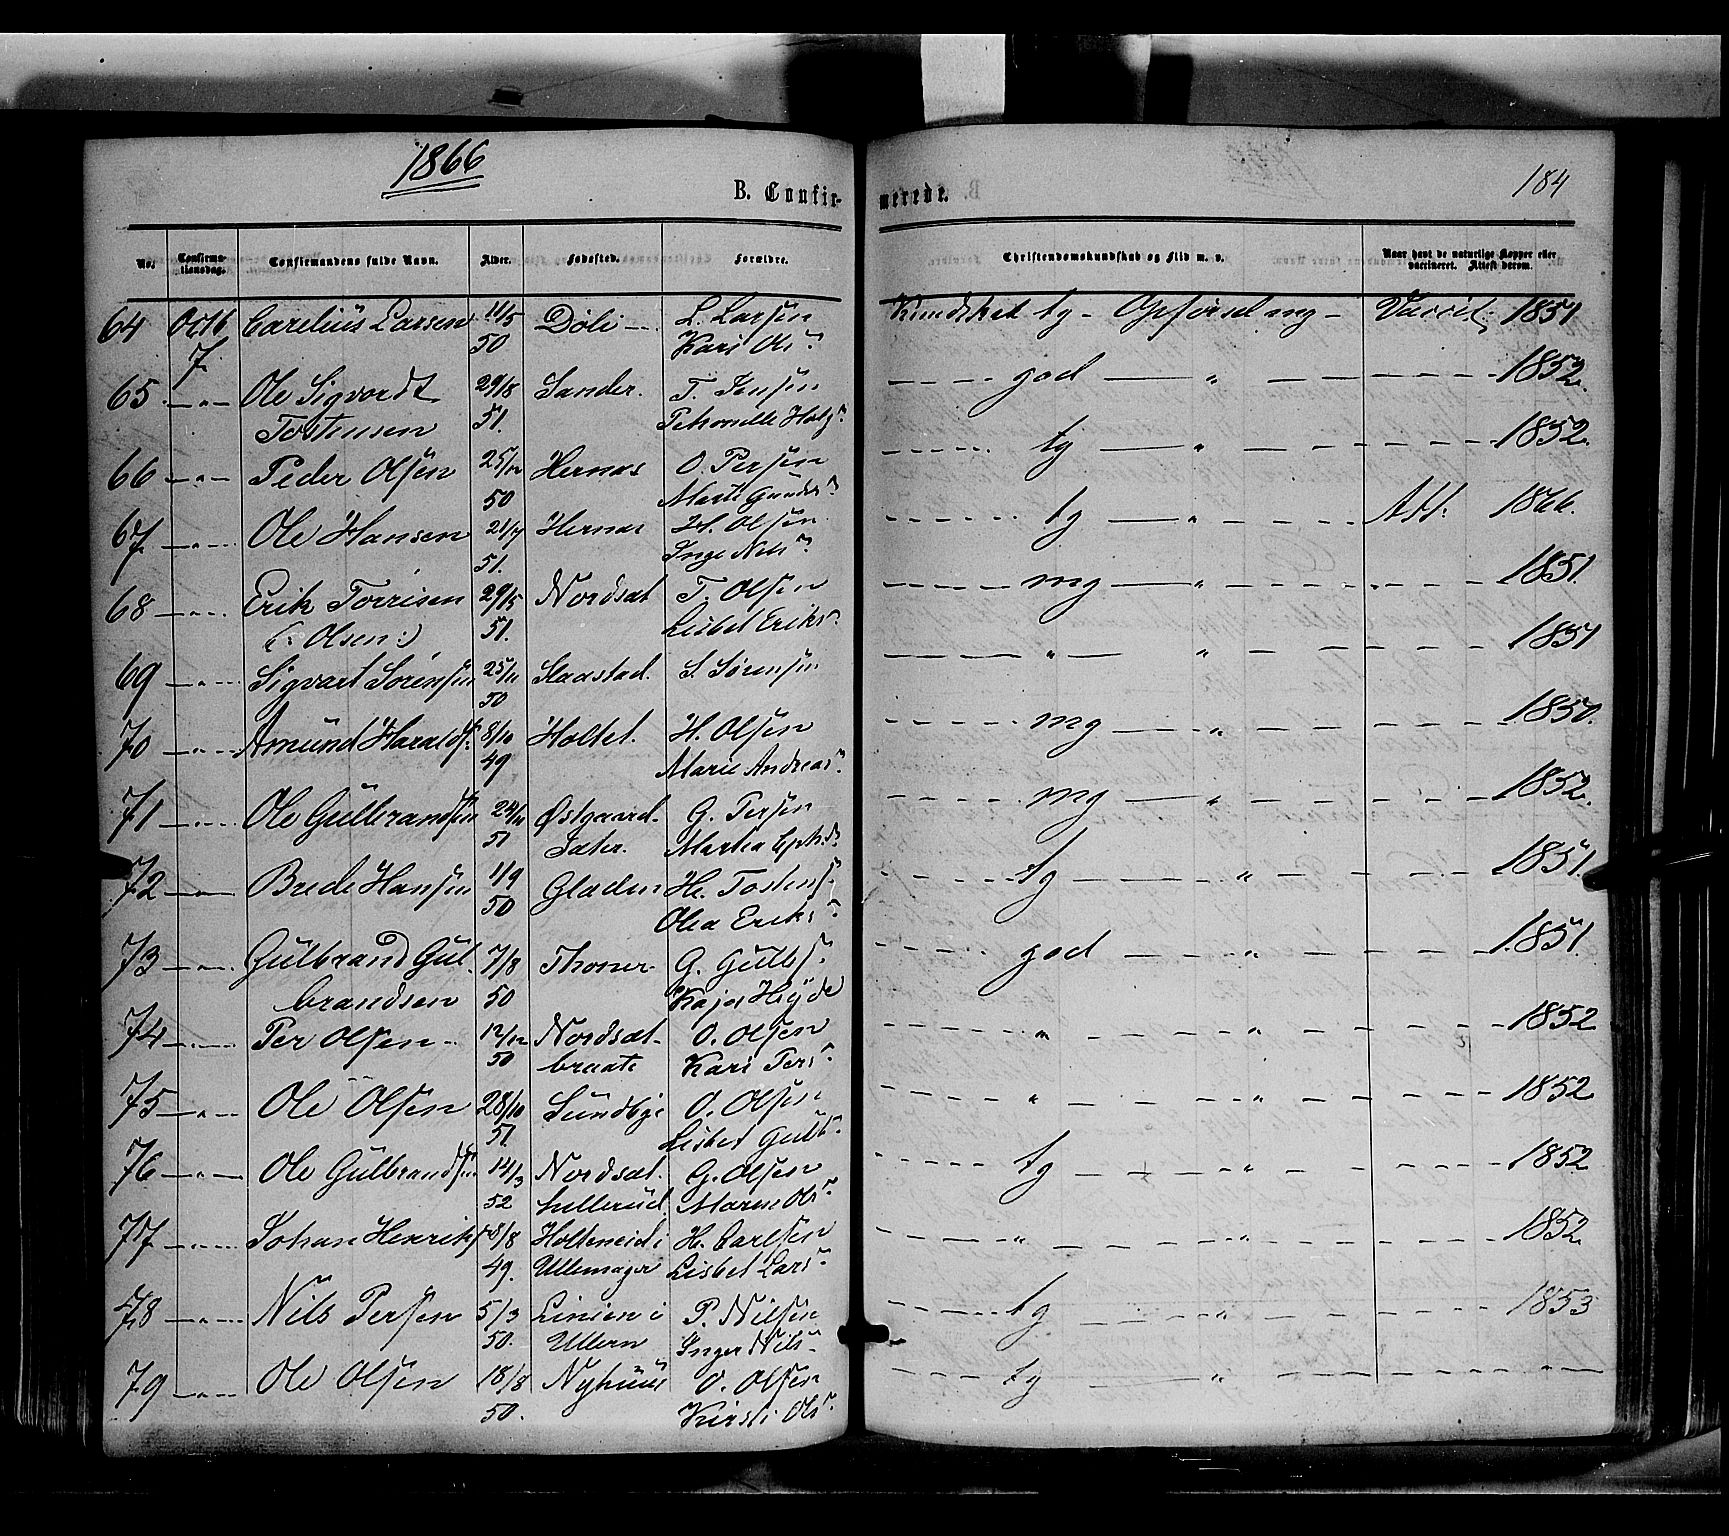 1866
184
B. Confirmerede.
No. Confirmationsdag. Confirmandens fulde Navn. Alder. Fødested. Forældre. Christendomskundskab og Flid m. v. Naar havt de naturlige Kopper eller vaccineret. Attest derom.
64 Octb Carelius Larsen 11/5 Döli — L. Larsen Kundskab tg — Opførsel mg — Vaccit. 1851
7 50 Kari Ols.
65 — „ — Ole Sigvardt 29/8 Sander. T. Jensen god — „ — 1852.
Tostensen 51. Petronelle Holg.
66 — „ — Peder Olsen 25/12 Hernæs O. Persen tg — „ — 1852.
50 Marte Gunders.
67 — „ — Ole Hansen 21/7 Hernæs H. Olsen tg — „ — Att. 1866.
51. Inge Nils.
68 — „ — Erik Torrisen 29/5 Nordsæt T. Olsen mg — „ — 1851.
(: Olsen:) 51. Lisbet Eriks.
69 — „ — Sigvart Sörensen 25/11 Skaastad. S. Sörensen „ — „ — 1851
50
70 — „ — Amund Haralds. 8/10 Holtet. H. Olsen mg — „ — 1850.
49 Marie Andreas.
71 — „ — Ole Gulbrandsen 24/11 Østgaard- G. Persen mg — „ — 1852.
51 Sæter. Marthea
72 — „ — Brede Hansen 1/9 Gladen H. Tostens. tg — „ — 1851.
50 Olea Eriks.
73 — „ — Gulbrand Gul 7/8 Thoner G. Gulbs. god — „ — 1851.
brandsen 50 Kajsa Heyde
74 — „ — Per Olsen — 12/12 Nordsæt- O. Olsen „ — „ — 1852
50 braate Kari Pers.
75 — „ — Ole Olsen 28/10 Sundbye O. Olsen „ — „ — 1852
51. Lisbet Gulb.
76 — „ — Ole Gulbrandsen 14/3 Nordsæt. G. Olsen tg — „ — 1852
52 Maren Ols.
77 — „ — Johan Henriks. 8/8 Holteneid i H. Carlsen „ — „ — 1852.
49. Lisbet Lars.
78 — „ — Nils Persen 5/3 Linien i P. Nilsen tg — „ — 1853
50. Ullern Inger Nils.
79 — „ — Ole Olsen 18/8 Nyhuus O. Olsen tg — „ —
50. Kirsti Ols.